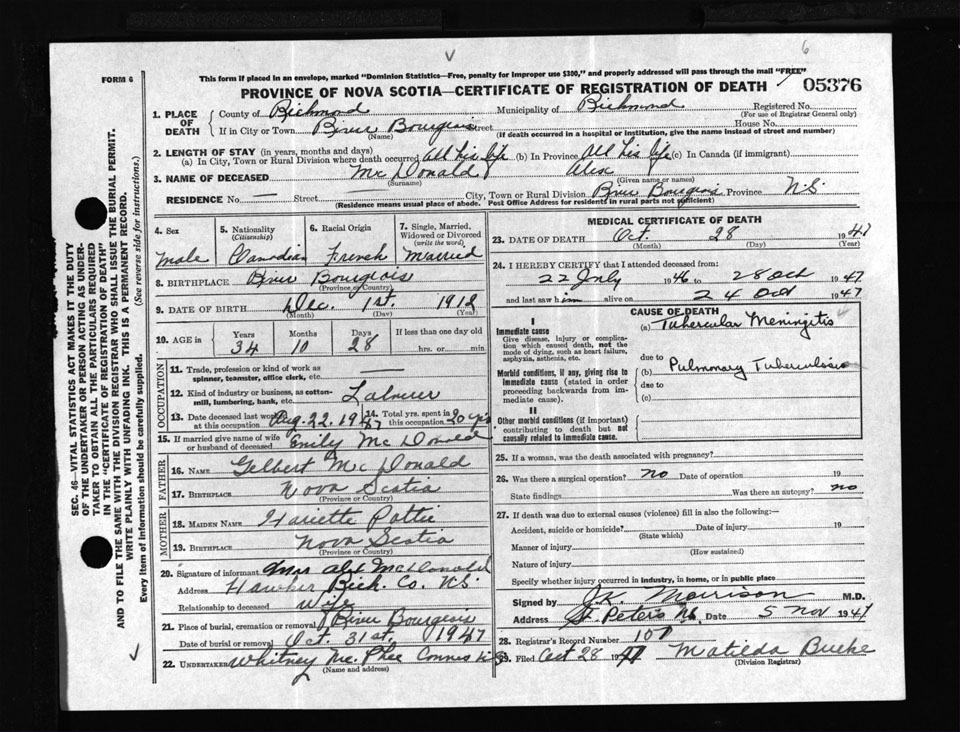 6
FORM 6
This form if placed in an envelope, marked "Dominion Statistics—Free, penalty for improper use $300," and properly addressed will pass through the mail "FREE"
PROVINCE OF NOVA SCOTIA—CERTIFICATE OF REGISTRATION OF DEATH
05376
SEC. 46—VITAL STATISTICS ACT MAKES IT THE DUTY
OF THE UNDERTAKER OR PERSON ACTING AS UNDER-
TAKER TO OBTAIN ALL THE PARTICULARS REQUIRED
IN THE "CERTIFICATE OF REGISTRATION OF DEATH"
AND TO FILE THE SAME WITH THE DIVISION REGISTRAR WHO SHALL ISSUE THE BURIAL PERMIT.
WRITE PLAINLY WITH UNFADING INK. THIS IS A PERMANENT RECORD.
Every item of information should be carefully supplied. (See reverse side for instructions.)
1. PLACE OF DEATH
County of Richmond Municipality of Richmond Registered No.
(For use of Registrar General only)
If in City or Town River Bourgeois Street House No.
(Name) (If death occurred in a hospital or institution, give the name instead of street and number)
2. LENGTH OF STAY (in years, months and days)
(a) In City, Town or Rural Division where death occurred All his life (b) In Province All his life (c) In Canada (if immigrant)
3. NAME OF DECEASED Mc Donald Alex
(Surname) (Given name or names)
RESIDENCE No. — Street City, Town or Rural Division River Bourgeois Province N.S.
(Residence means usual place of abode. Post Office Address for residents in rural parts not sufficient)
4. Sex
Male
5. Nationality
(Citizenship)
Canadian
6. Racial Origin
French
7. Single, Married, Widowed or Divorced
(write the word)
Married
8. BIRTHPLACE River Bourgeois
(Province or Country)
9. DATE OF BIRTH Dec. 1st. 1912
(Month) (Day) (Year)
10. AGE in
Years Months Days If less than one day old
34 10 28 hrs. or min.
OCCUPATION
11. Trade, profession or kind of work as
spinner, teamster, office clerk, etc. —
12. Kind of industry or business, as cotton-
mill, lumbering, bank, etc. Labourer
13. Date deceased last worked at this occupation Aug. 22. 1947
14. Total yrs. spent in this occupation 20 yrs
15. If married give name of wife
or husband of deceased Emily Mc Donald
FATHER
16. NAME Gelbert Mc Donald
17. BIRTHPLACE Nova Scotia
(Province or Country)
MOTHER
18. MAIDEN NAME Hariette Pottie
19. BIRTHPLACE Nova Scotia
(Province or Country)
20. Signature of informant Mrs Alex McDonald
Address Hawker Rich. Co. N.S.
Relationship to deceased wife
21. Place of burial, cremation or removal River Bourgeois
Date of burial or removal Oct. 31st. 1947
22. UNDERTAKER Whitney Mc. Phee N.S.
(Name and address)
MEDICAL CERTIFICATE OF DEATH
23. DATE OF DEATH Oct. 28 1947
(Month) (Day) (Year)
24. I HEREBY CERTIFY that I attended deceased from:
22 July 1946 to 28 Oct 1947
and last saw him alive on 24 Oct 1947
CAUSE OF DEATH
I
Immediate cause
Give disease, injury or complica-
tion which caused death, not the
mode of dying, such as heart failure,
asphyxia, asthenia, etc.
(a) Tubercular Meningitis
due to
Morbid conditions, if any, giving rise to
immediate cause (stated in order
proceeding backwards from im-
mediate cause).
(b) Pulmonary Tuberculosis
due to
(c)
II
Other morbid conditions (if important)
contributing to death but not
causally related to immediate cause.
25. If a woman, was the death associated with pregnancy?
26. Was there a surgical operation? no Date of operation 19
State findings Was there an autopsy? no
27. If death was due to external causes (violence) fill in also the following:—
Accident, suicide or homicide? Date of injury 19
(State which)
Manner of injury
(How sustained)
Nature of injury
Specify whether injury occurred in industry, in home, or in public place
Signed by J.K. Morrison M.D.
Address St. Peters NS Date 5 Nov 1947
28. Registrar's Record Number 107
29. Filed Oct 28 1947 Matilda Burke
(Division Registrar)